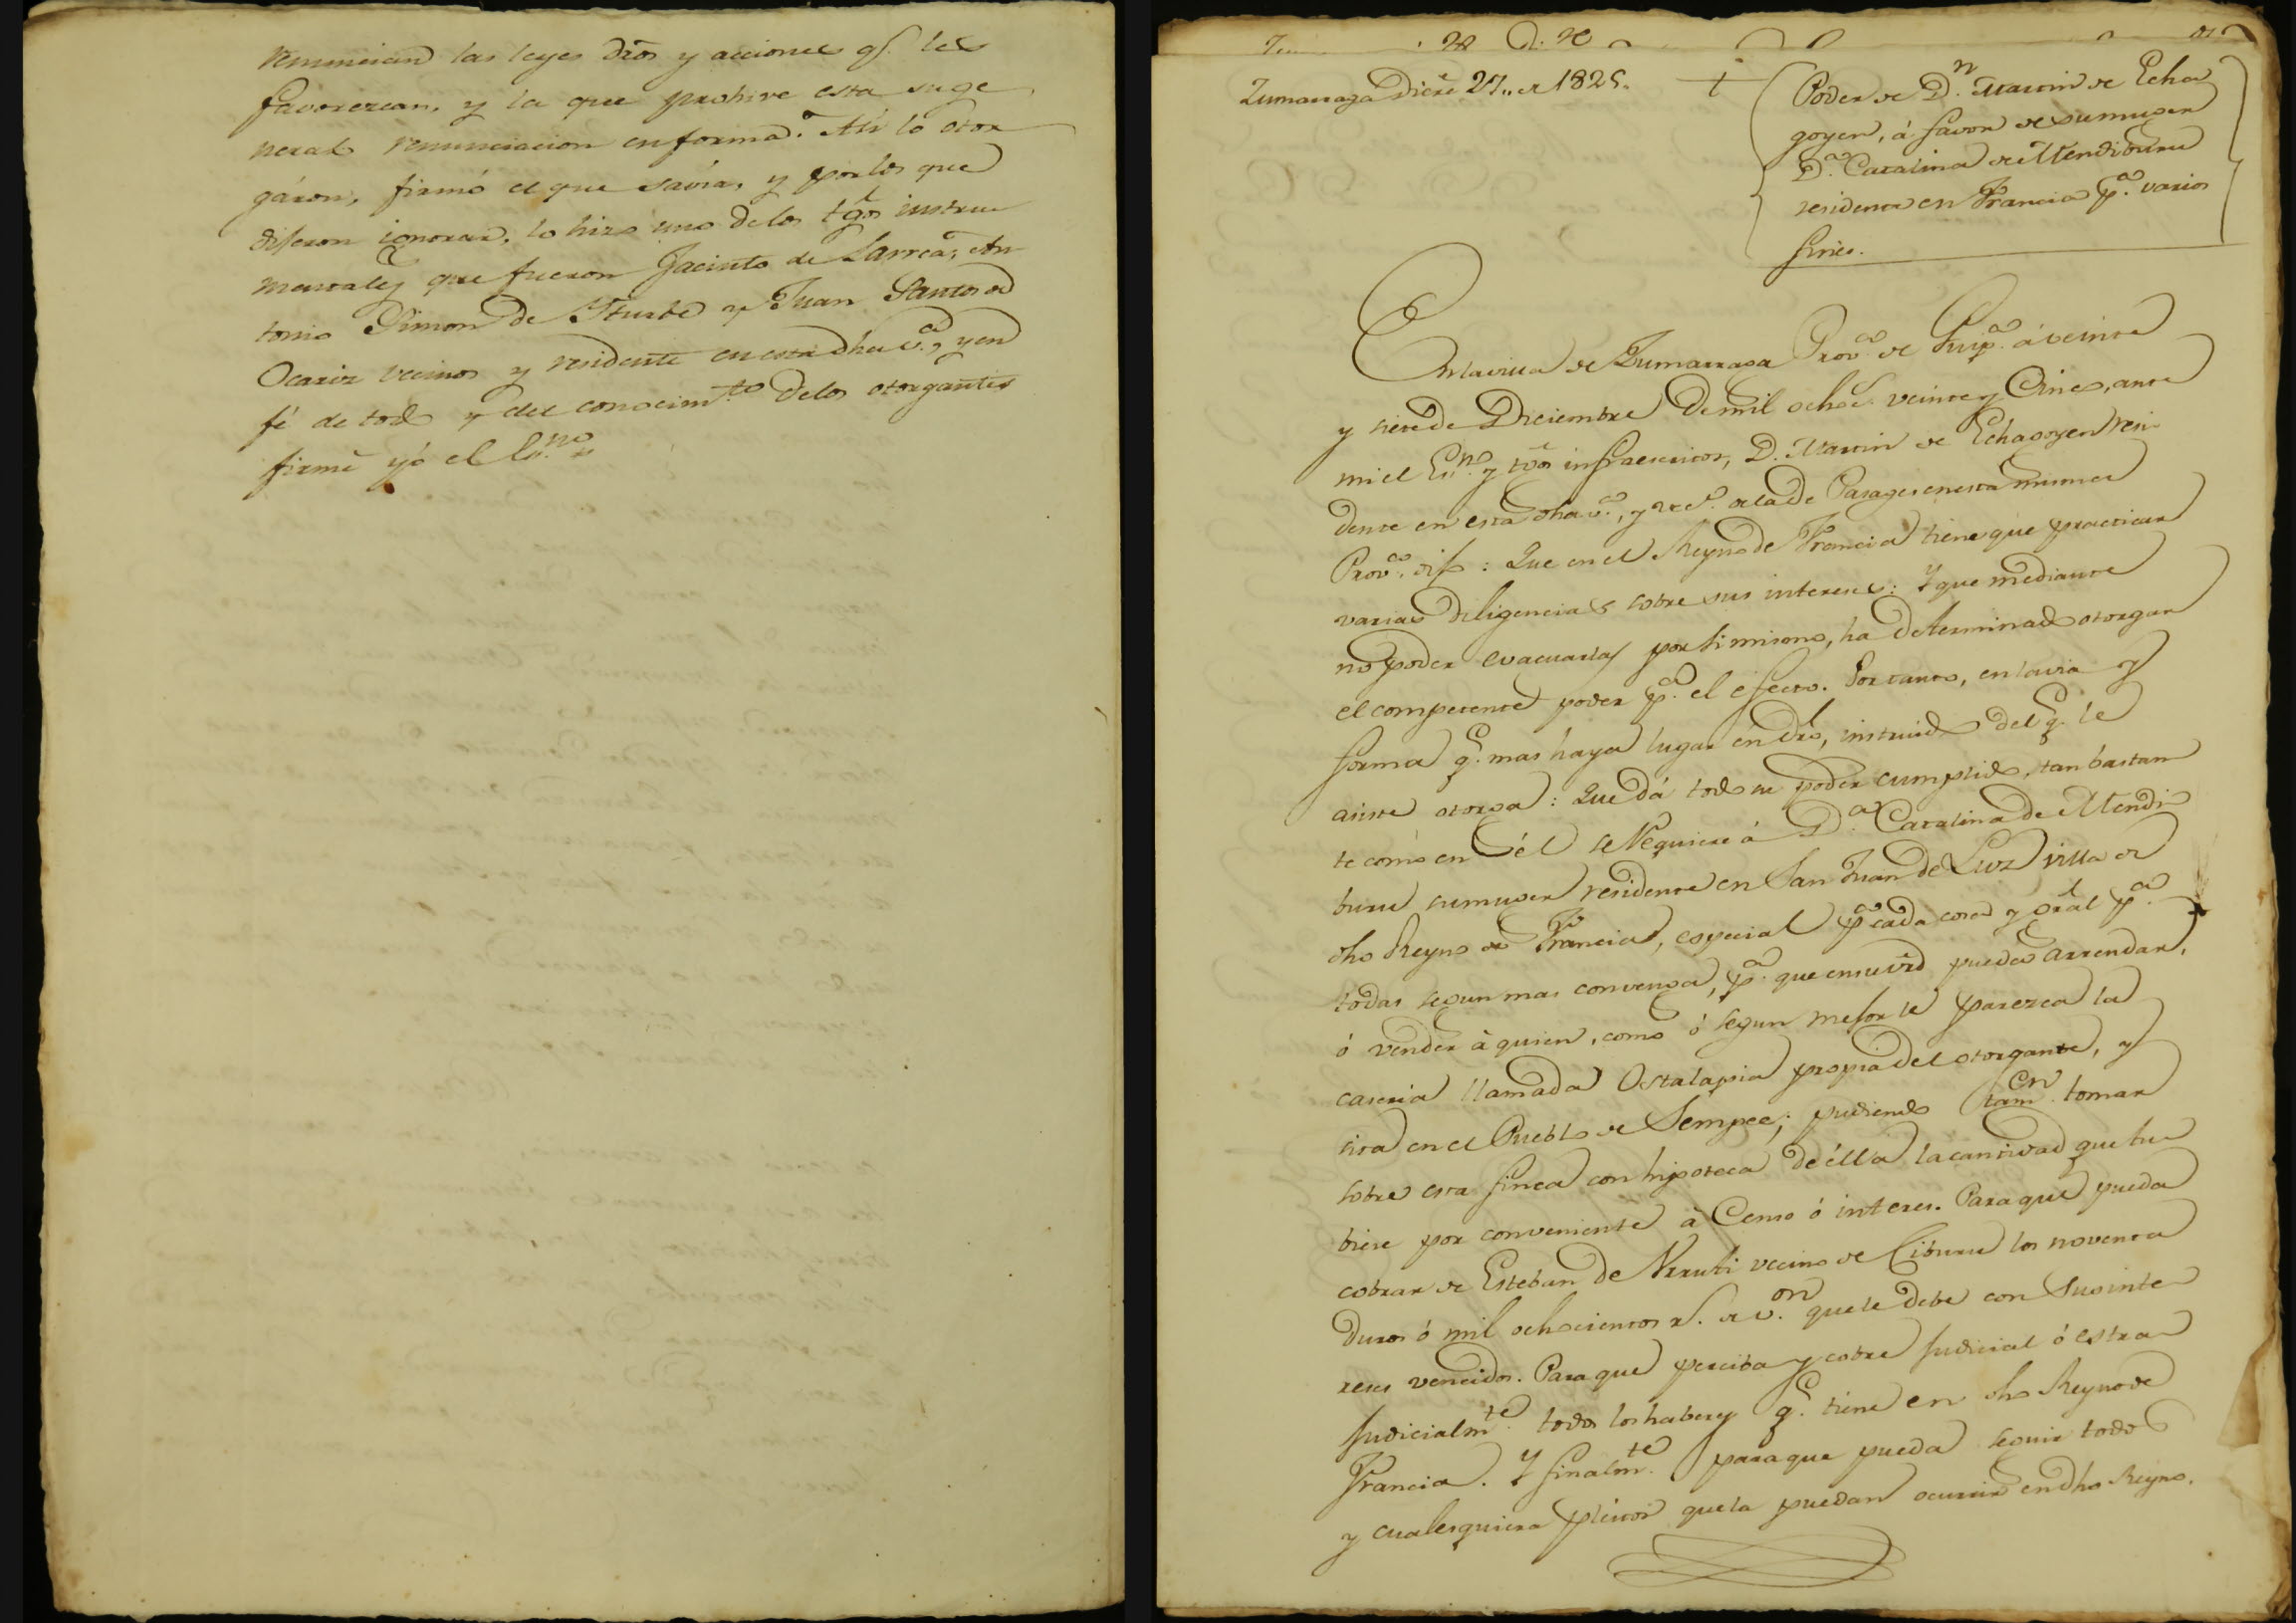 renuncian las leyes dros y acciones q.e les
favorezcan, y la que prohive esta su ge
neral renunciacion en forma. Asi lo otor
gáron, firmó el que savía, y por los que
dijeron ignorar, lo hizo uno de los tgos instru
mentales que fueron Jacinto de Larrea, An
tonio Simon de Iturbe y Juan Santos de
Ocariz vecinos y residente en esta dha v.a, y en
fé de todo y del conocim.to de los otorgantes
firmé yó el Es.no
Zumarraga Dicre 27,, de 1825.
Poder de D.n Martin de Echa
goyen, á favor de su muger
D.a Catalina de Mendiburu
residente en Francia p.a varios
fines.
En la villa de Zumarraga Prov.a de Guip.a á veinte
y siete de Diciembre de mil ochos. veinte y Cinco, ante
mi el Es.no y tgos infraescritos, D. Martin de Echagoyen resi
dente en esta dha v.a, y vec.o de la de Pasages en esta misma
Prov.a dijo: Que en el Reyno de Francia tiene que practicar
varias diligencias sobre sus intereses: Y que mediante
no poder evacuarlas por si mismo, ha determinado otorgar
el competente poder p.a el efecto. Por tanto, en la via y
forma q.e mas haya lugar en dro, instruido del q.e le
asiste otorga: Que dá todo su poder cumplido, tan bastan
te como en él se requiere á D.a Catalina de Mendi
buru su muger residente en San Juan de Luz villa de
dho Reyno de Francia, especial p.a cada cosa y gral p.a
todas segun mas convenga, p.a que en su vrd pueda arrendar,
ó vender á quien, como ó segun mejor le parezca la
caseria llamada Ostalapia propia del otorgante, y
sita en el Pueblo de Sempee; pudiendo tam.en tomar
sobre esta finca con hipoteca de élla la cantidad que tu
biere por conveniente á Censo ó interes. Para que pueda
cobrar de Esteban de Urruti vecino de Ciburu los noventa
duros ó mil ochocientos r.s de v.on que le debe con sus inte
reses vencidos. Para que perciba y cobre judicial ó estra
judicialm.te todos los haberes q.e tiene en dho Reyno de
Francia. Y finalm.te para que pueda seguir todos
y cualesquiera pleitos que la puedan ocurrir en dho Reyno.